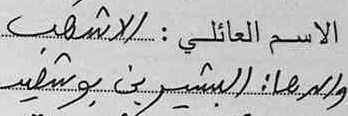 الاسم العائلي : الاشهب
والدها: البشير بن بوشعيد